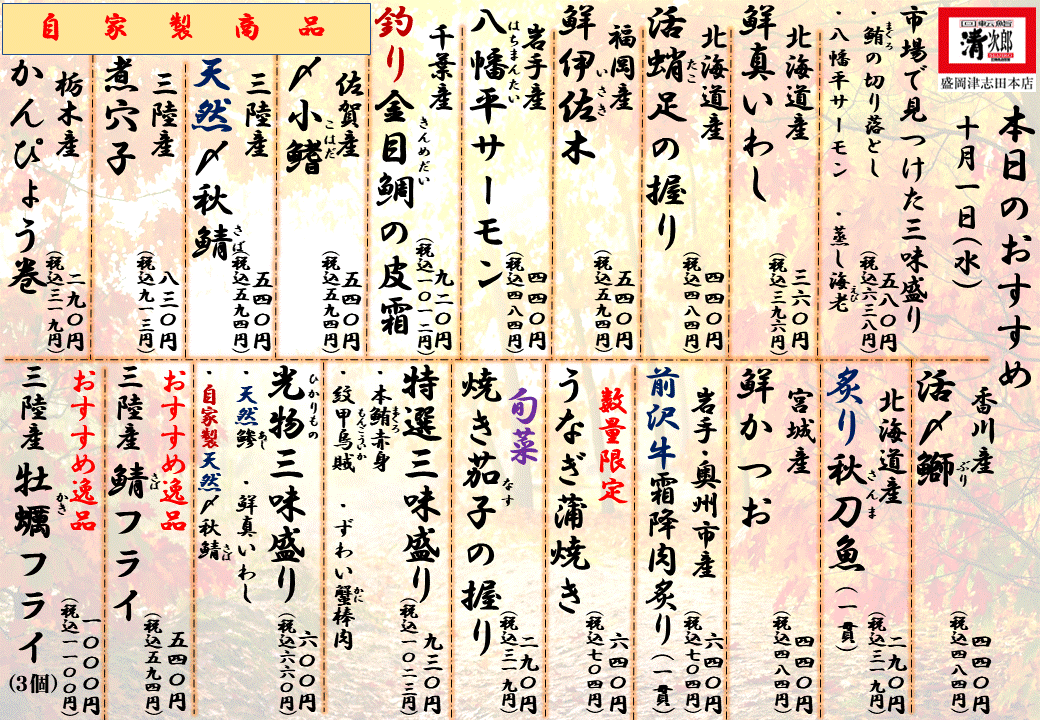 回転鮨
清次郎
盛岡津志田本店
本日のおすすめ
十月一日(水)
市場で見つけた三味盛り
・鮪の切り落とし
まぐろ
・八幡平サーモン ・蒸し海老
えび
五八〇円
(税込六三八円)
北海道産
鮮真いわし
三六〇円
(税込三九六円)
北海道産
活蛸足の握り
たこ
四四〇円
(税込四八四円)
福岡産
鮮伊佐木
いさき
五四〇円
(税込五九四円)
岩手産
八幡平サーモン
はちまんたい
四四〇円
(税込四八四円)
千葉産
釣り金目鯛の皮霜
きんめだい
九二〇円
(税込一〇一二円)
自家製商品
佐賀産
〆小鰭
こはだ
五四〇円
(税込五九四円)
三陸産
天然〆秋鯖
さば
五四〇円
(税込五九四円)
三陸産
煮穴子
八三〇円
(税込九一三円)
栃木産
かんぴょう巻
二九〇円
(税込三一九円)
香川産
活〆鰤
ぶり
四四〇円
(税込四八四円)
北海道産
炙り秋刀魚(一貫)
さんま
二九〇円
(税込三一九円)
宮城産
鮮かつお
四四〇円
(税込四八四円)
岩手・奥州市産
前沢牛霜降肉炙り(一貫)
六四〇円
(税込七〇四円)
数量限定
うなぎ蒲焼き
六四〇円
(税込七〇四円)
旬菜
焼き茄子の握り
なす
二九〇円
(税込三一九円)
特選三味盛り
・本鮪赤身 ・ずわい蟹棒肉
まぐろ
かに
・紋甲烏賊
もんごういか
九三〇円
(税込一〇二三円)
光物三味盛り
ひかりもの
・天然鯵 ・鮮真いわし
あじ
・自家製天然〆秋鯖
さば
六〇〇円
(税込六六〇円)
おすすめ逸品
三陸産 鯖フライ
さば
五四〇円
(税込五九四円)
おすすめ逸品
三陸産 牡蠣フライ(3個)
かき
一〇〇〇円
(税込一一〇〇円)